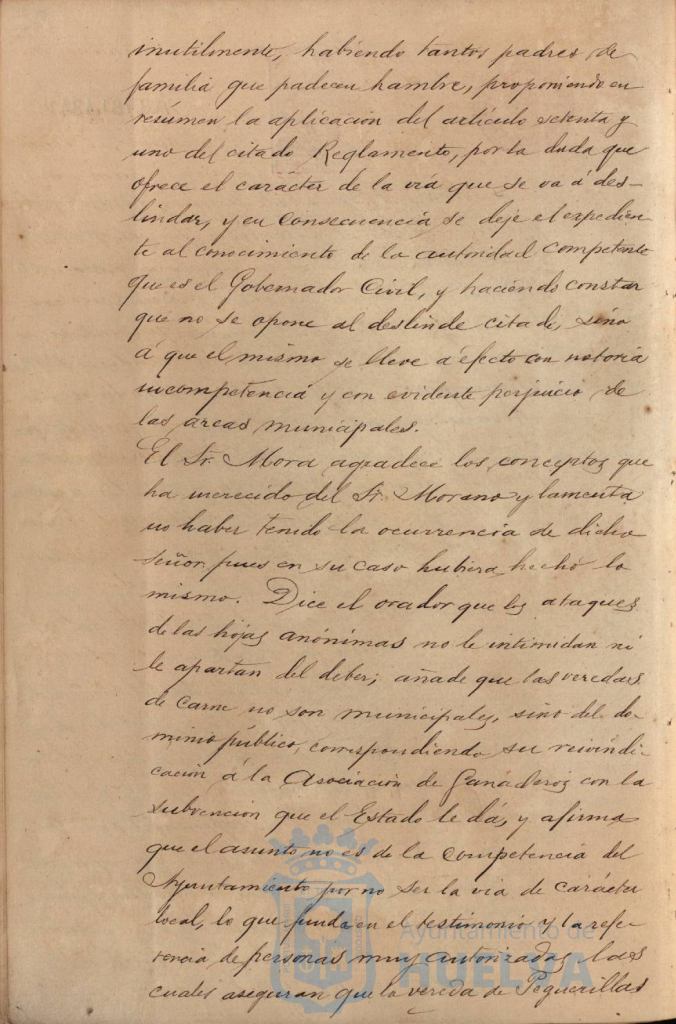 inutilmente, habiendo tantos padres de
familia que padecen hambre, proponiendo en
resúmen la aplicacion del artículo setenta y
uno del citado Reglamento, por la duda que
ofrece el carácter de la vía que se va á des-
lindar, y en consecuencia se deje el expedien-
te al conocimiento de la autoridad competente
que es el Gobernador Civil, y haciendo constar
que no se opone al deslinde citado, sino
á que el mismo se lleve á efecto con notoria
incompetencia y con evidente perjuicio de
las arcas municipales.
El Sr. Mora agradece los conceptos que
ha merecido del Sr. Morano y lamenta
no haber tenido la ocurrencia de dicho
señor pues en su caso hubiera hecho lo
mismo. Dice el orador que los ataques
de las hojas anónimas no le intimidan ni
le apartan del deber; añade que las veredas
de carne no son municipales, sino del do-
minio público, correspondiendo su reivindi-
cación á la Asociación de Ganaderos con la
subvencion que el Estado le dá, y afirma
que el asunto no es de la competencia del
Ayuntamiento por no ser la via de carácter
local, lo que funda en el testimonio y la refe-
rencia de personas muy autorizadas, las
cuales aseguran que la vereda de Peguerillas
Ayuntamiento de
HUELVA